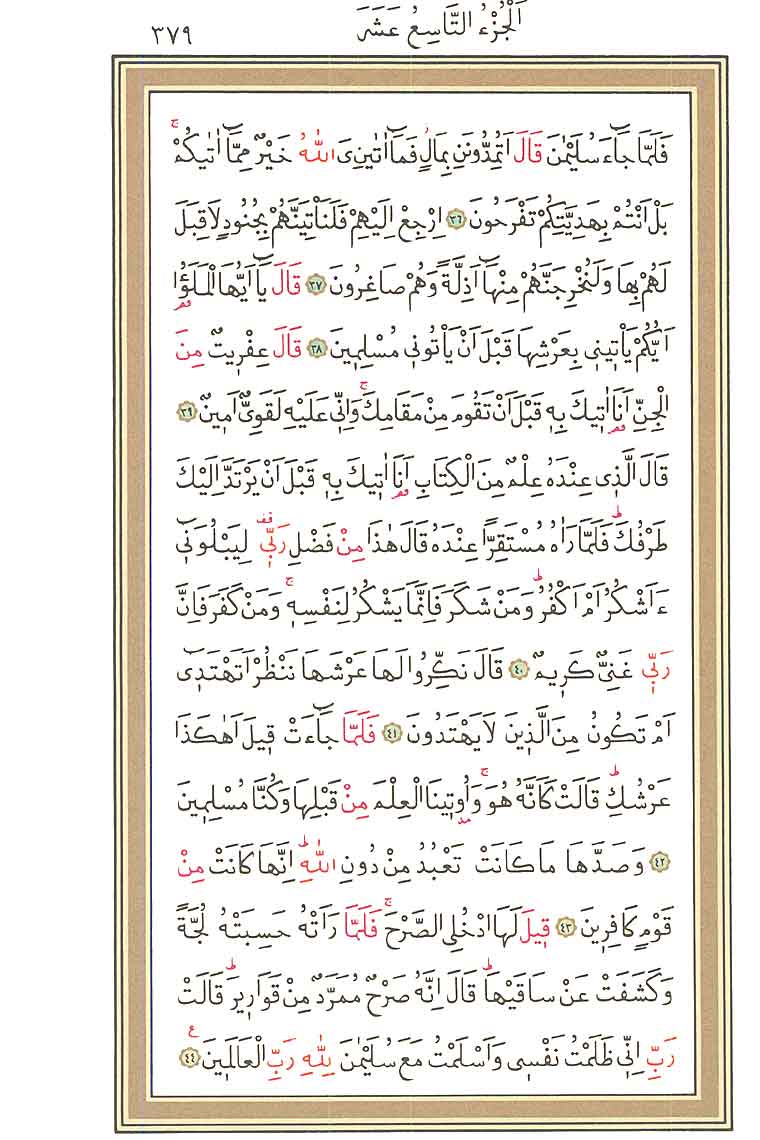 اَلْجُزْءُ التَّاسِعُ عَشَرَ
٣٧٩
فَلَمَّا جَٓاءَ سُلَيْمٰنَ قَالَ اَتُمِدُّونَنِ بِمَالٍۘ فَمَٓا اٰتٰينِيَ اللّٰهُ خَيْرٌ مِمَّٓا اٰتٰيكُمْۚ
بَلْ اَنْتُمْ بِهَدِيَّتِكُمْ تَفْرَحُونَ ﴿٣٦﴾ اِرْجِعْ اِلَيْهِمْ فَلَنَأْتِيَنَّهُمْ بِجُنُودٍ لَا قِبَلَ
لَهُمْ بِهَا وَلَنُخْرِجَنَّهُمْ مِنْهَٓا اَذِلَّةً وَهُمْ صَاغِرُونَ ﴿٣٧﴾ قَالَ يَٓا اَيُّهَا الْمَلَؤُ۬ا
اَيُّكُمْ يَأْت۪ين۪ي بِعَرْشِهَا قَبْلَ اَنْ يَأْتُون۪ي مُسْلِم۪ينَ ﴿٣٨﴾ قَالَ عِفْر۪يتٌ مِنَ
الْجِنِّ اَنَا۬ اٰت۪يكَ بِه۪ قَبْلَ اَنْ تَقُومَ مِنْ مَقَامِكَۚ وَاِنّ۪ي عَلَيْهِ لَقَوِيٌّ اَم۪ينٌ ﴿٣٩﴾
قَالَ الَّذ۪ي عِنْدَهُ عِلْمٌ مِنَ الْكِتَابِ اَنَا۬ اٰت۪يكَ بِه۪ قَبْلَ اَنْ يَرْتَدَّ اِلَيْكَ
طَرْفُكَۜ فَلَمَّا رَاٰهُ مُسْتَقِرًّا عِنْدَهُ قَالَ هٰذَا مِنْ فَضْلِ رَبّ۪ي۠ لِيَبْلُوَن۪ٓي
ءَاَشْكُرُ اَمْ اَكْفُرُۜ وَمَنْ شَكَرَ فَاِنَّمَا يَشْكُرُ لِنَفْسِه۪ۚ وَمَنْ كَفَرَ فَاِنَّ
رَبّ۪ي غَنِيٌّ كَر۪يمٌ ﴿٤٠﴾ قَالَ نَكِّرُوا لَهَا عَرْشَهَا نَنْظُرْ اَتَهْتَد۪ٓي
اَمْ تَكُونُ مِنَ الَّذ۪ينَ لَا يَهْتَدُونَ ﴿٤١﴾ فَلَمَّا جَٓاءَتْ ق۪يلَ اَهٰكَذَا
عَرْشُكِۜ قَالَتْ كَاَنَّهُ هُوَۚ وَاُو۫ت۪ينَا الْعِلْمَ مِنْ قَبْلِهَا وَكُنَّا مُسْلِم۪ينَ
﴿٤٢﴾ وَصَدَّهَا مَا كَانَتْ تَعْبُدُ مِنْ دُونِ اللّٰهِۜ اِنَّهَا كَانَتْ مِنْ
قَوْمٍ كَافِر۪ينَ ﴿٤٣﴾ ق۪يلَ لَهَا ادْخُلِي الصَّرْحَۚ فَلَمَّا رَاَتْهُ حَسِبَتْهُ لُجَّةً
وَكَشَفَتْ عَنْ سَاقَيْهَاۜ قَالَ اِنَّهُ صَرْحٌ مُمَرَّدٌ مِنْ قَوَار۪يرَۜ قَالَتْ
رَبِّ اِنّ۪ي ظَلَمْتُ نَفْس۪ي وَاَسْلَمْتُ مَعَ سُلَيْمٰنَ لِلّٰهِ رَبِّ الْعَالَم۪ينَ ﴿٤٤﴾ ع